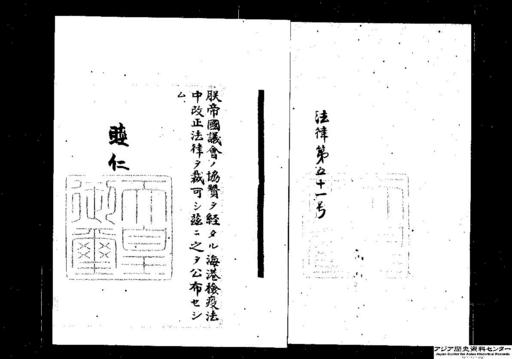 法律第五十一号
朕帝國議會ノ協賛ヲ経タル海港檢疫法
中改正法律ヲ裁可シ茲ニ之ヲ公布セシ
ム
睦仁
天皇御璽
アジア歴史資料センター
Japan Center for Asian Historical Records